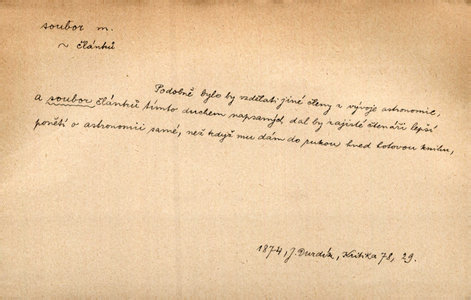 soubor m.
~ článků
Podobně bylo by vzdělati jiné členy z vývoje astronomie,
a soubor článků tímto duchem napsaných, dal by zajisté čtenáři lepší
ponětí o astronomii samé, než když mu dám do rukou hned hotovou knihu,
1874, J. Durdík, Kritika 78, 29.